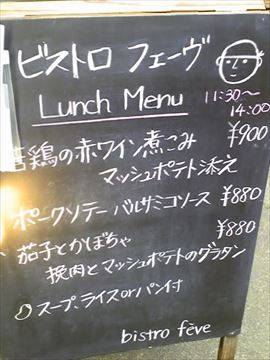 ビストロ フェーヴ
Lunch Menu
11:30〜
14:00
若鶏の赤ワイン煮こみ ¥900
マッシュポテト添え
ポークソテー バルサミコソース ¥880
茄子とかぼちゃ ¥880
挽肉とマッシュポテトのグラタン
スープ、ライスorパン付
bistro fève